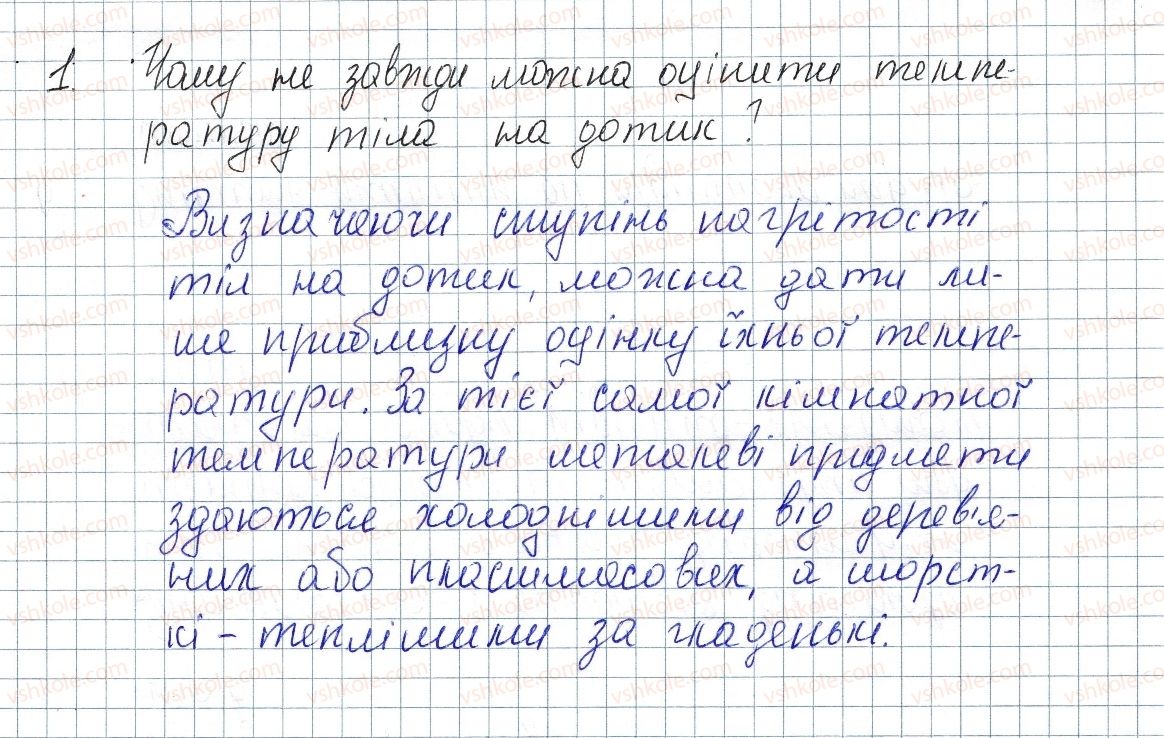 1. Чому не завжди можна оцінити темпе-
ратуру тіла на дотик?
Визначаючи ступінь нагрітості
тіл на дотик, можна дати ли-
ше приблизну оцінку їхньої темпе-
ратури. За тієї самої кімнатної
температури металеві предмети
здаються холоднішими від дерев'я-
них або пластмасових, а шорст-
кі - теплішими за гладенькі.